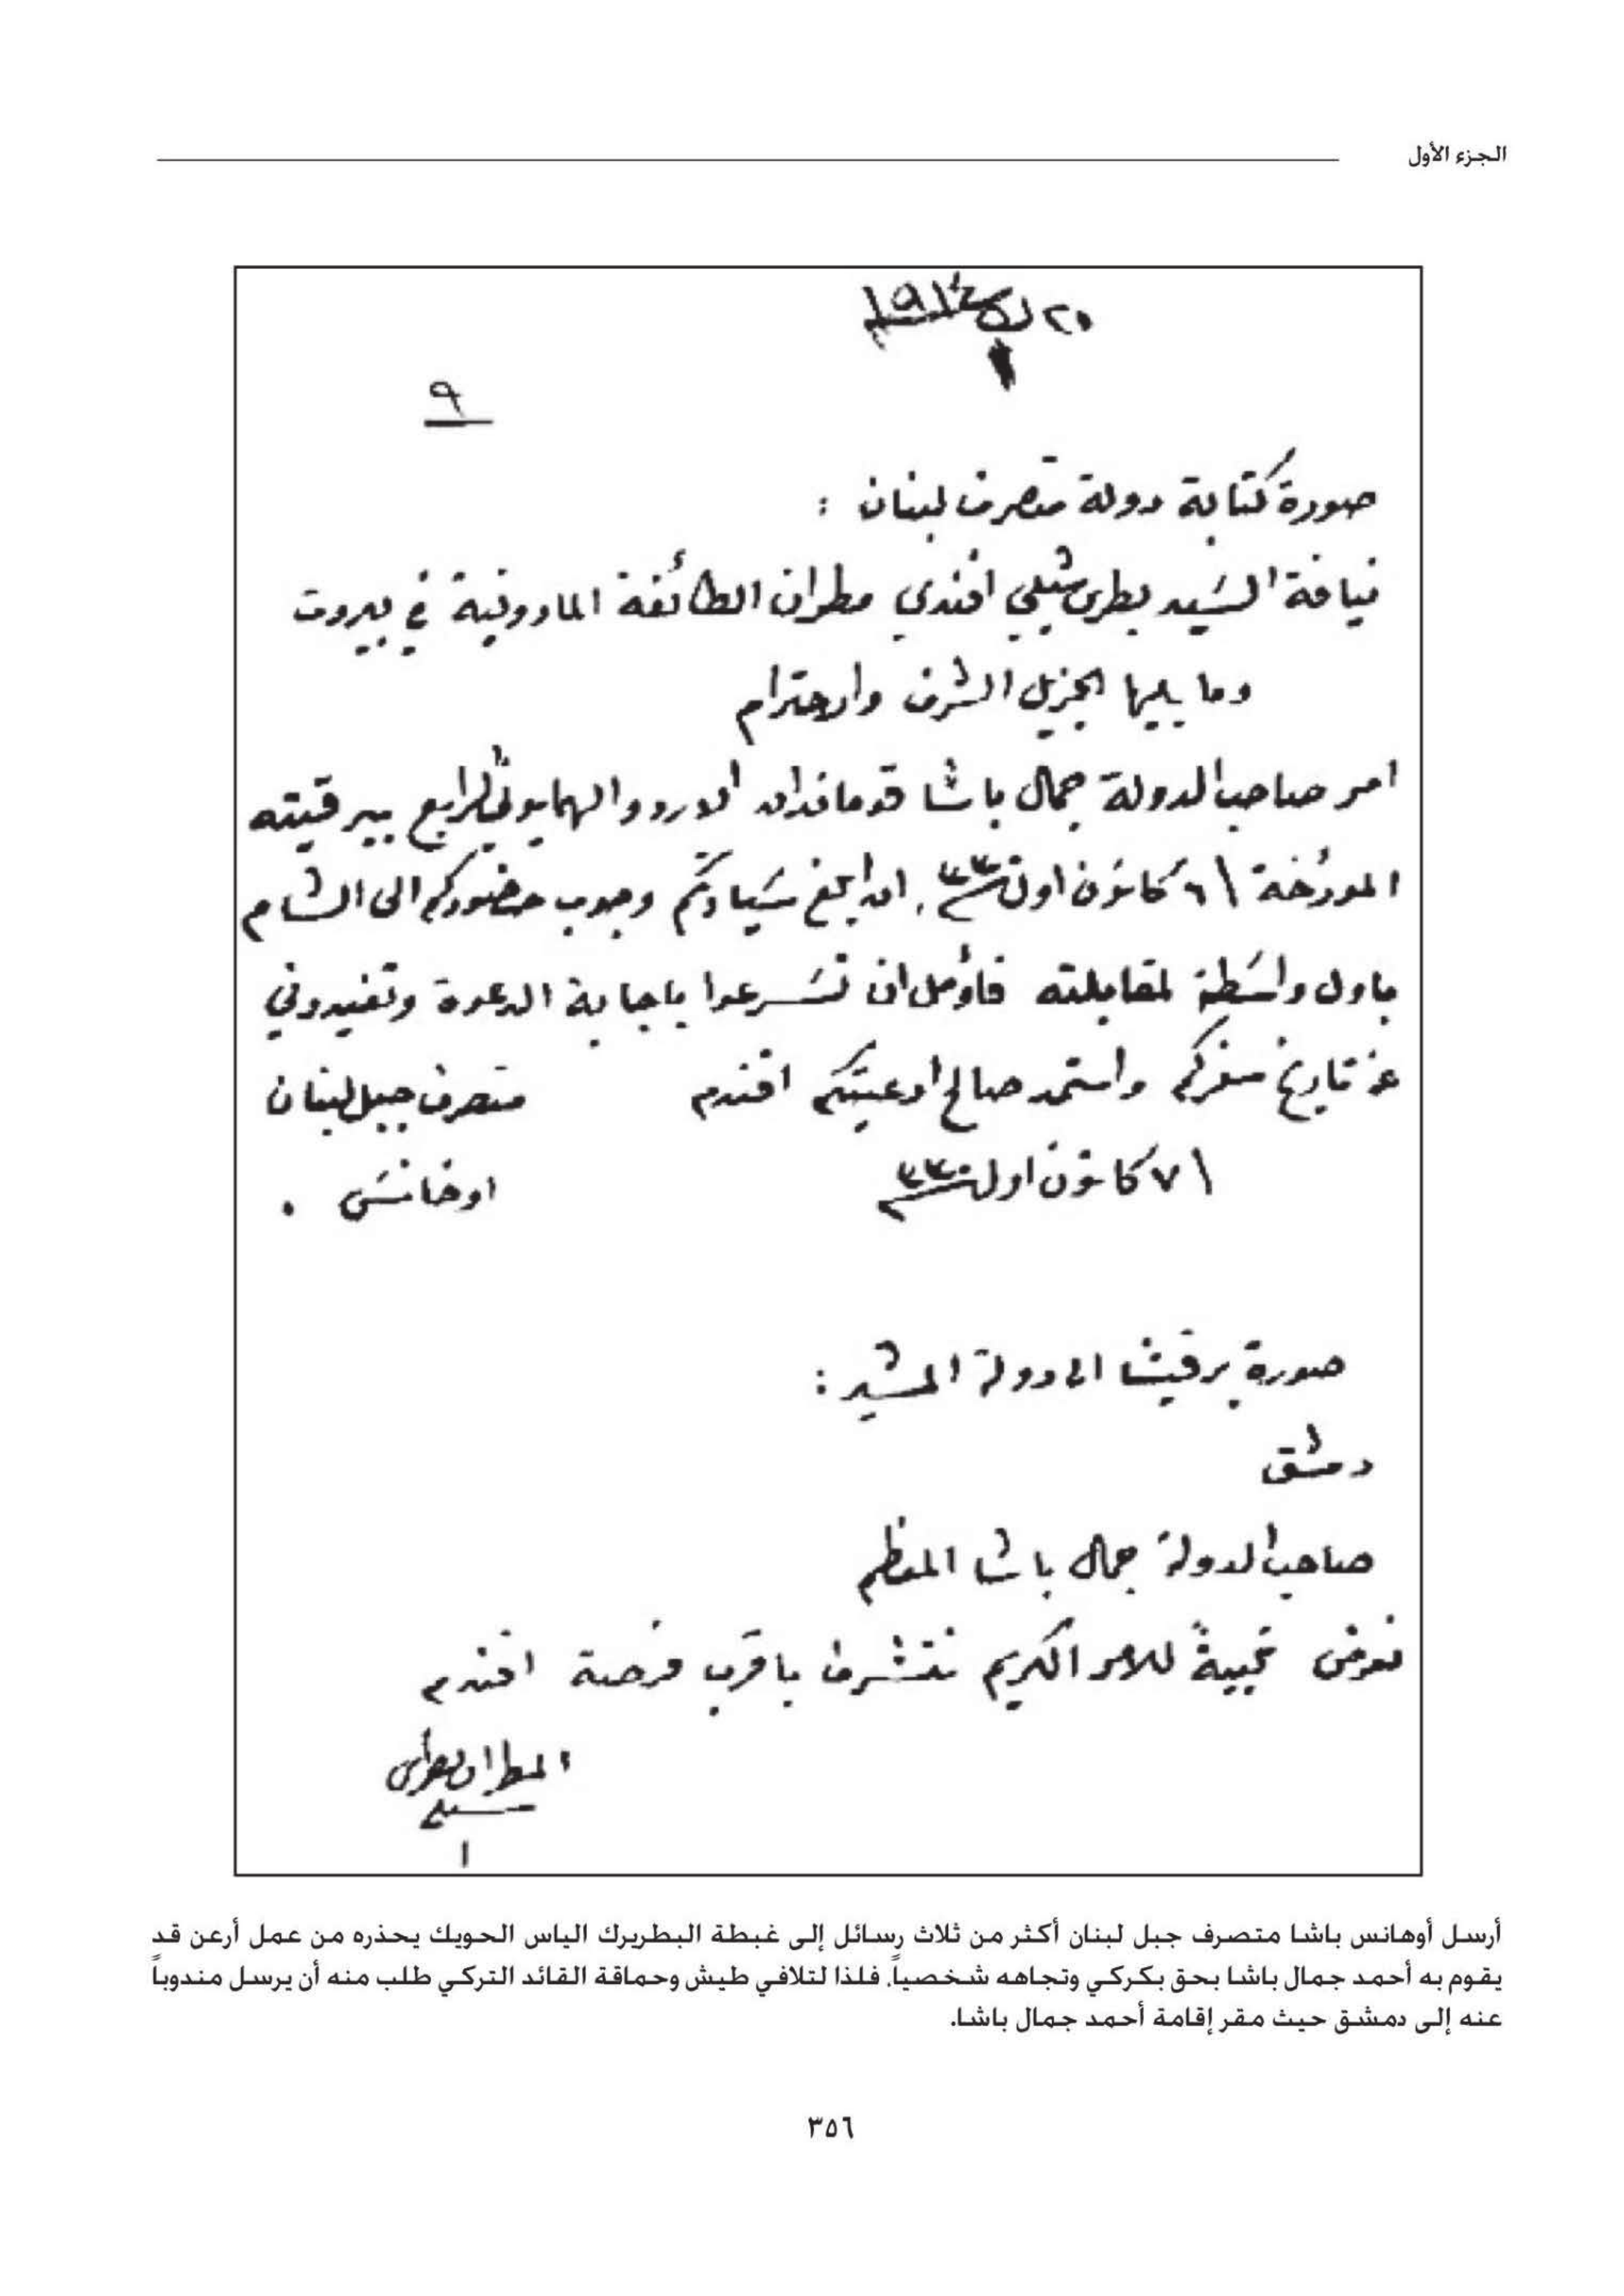 الجزء الأول
٢٠ ك١ ١٩١٤
٩
صورة كتابة دولة متصرف لبنان :
نيافة السيد بطرس شبلي افندي مطران الطائفة المارونية في بيروت
وما يليها الجزيل الشرف والاحترام
امر صاحب الدولة جمال باشا قوماندان الاردو الهمايوني الرابع ببرقيته
المورخة ١٦ كانون اول ٣٣٠، ان ابلغ سيادتكم وجوب حضوركم الى الشام
باول واسطة لمقابلته فاؤمل ان تسرعوا باجابة الدعوة وتفيدوني
عن تاريخ سفركم واستمد صالح ادعيتكم افندم متصرف جبل لبنان
١٧ كانون اول ٣٣٠ اوخانس .
صورة برقيتنا الى دولة المشير :
دمشق
صاحب الدولة جمال باشا المعظم
نعرض تلبيةً للامر الكريم نتشرف باقرب فرصة افندم
المطران بطرس
شبلي
١
أرسل أوهانس باشا متصرف جبل لبنان أكثر من ثلاث رسائل إلى غبطة البطريرك الياس الحويك يحذره من عمل أرعن قد
يقوم به أحمد جمال باشا بحق بكركي وتجاهه شخصياً. فلذا لتلافي طيش وحماقة القائد التركي طلب منه أن يرسل مندوباً
عنه إلى دمشق حيث مقر إقامة أحمد جمال باشا.
٣٥٦